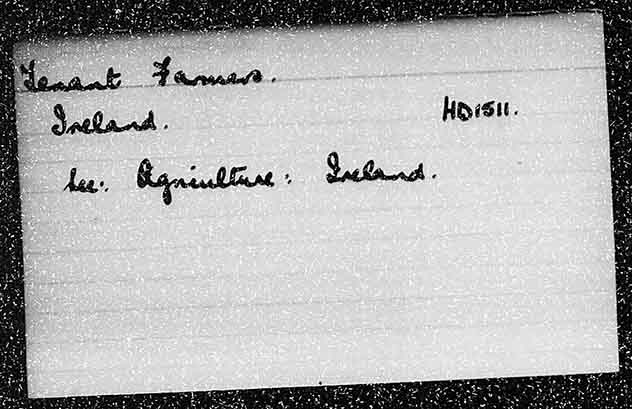 Tenant Farmers.
Ireland. HD1511.
See: Agriculture: Ireland.